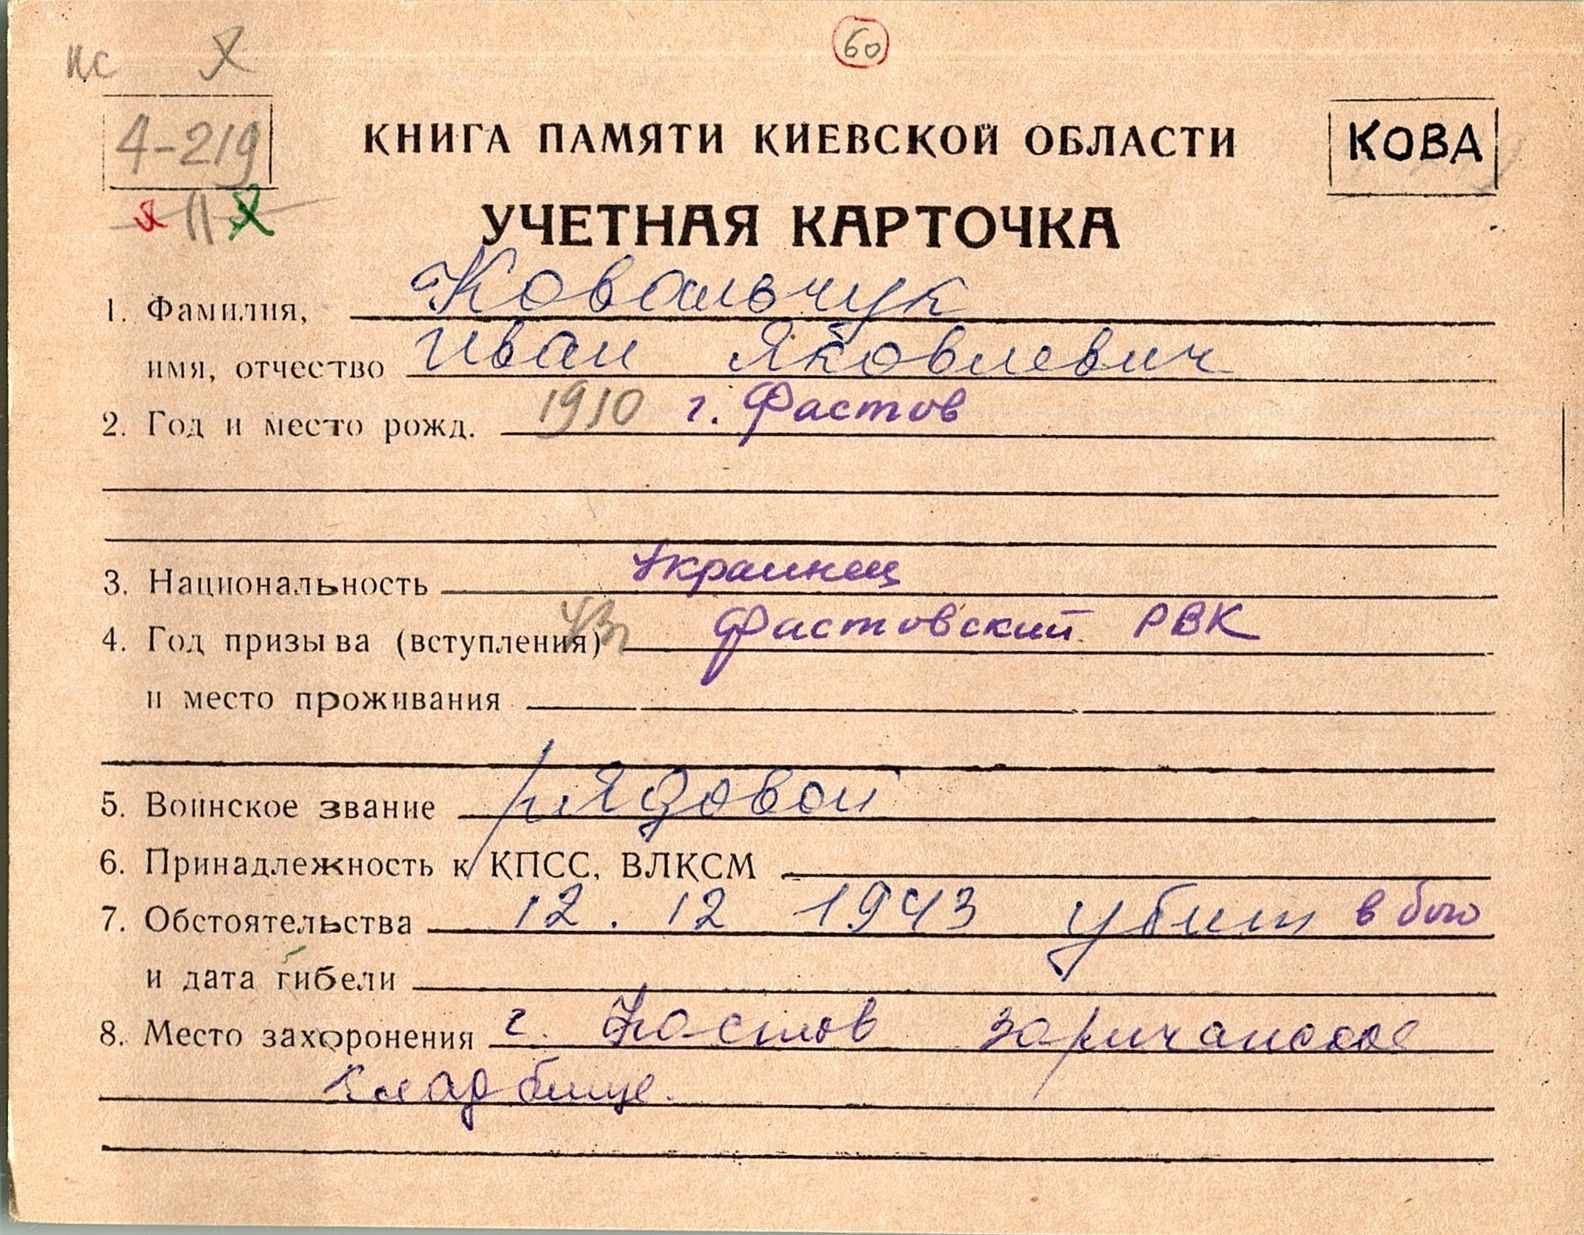 пс Х
60
4-219
х 11 Х
КНИГА ПАМЯТИ КИЕВСКОЙ ОБЛАСТИ
КОВА
УЧЕТНАЯ КАРТОЧКА
1. Фамилия, Ковальчук
имя, отчество Иван Яковлевич
2. Год и место рожд. 1910 г. Фастов
3. Национальность Украинец
4. Год призыва (вступления) 43г Фастовский РВК
и место проживания
5. Воинское звание рядовой
6. Принадлежность к КПСС, ВЛКСМ
7. Обстоятельства 12. 12 1943 убит в бою
и дата гибели
8. Место захоронения г. Фастов Заричанское
кладбище.